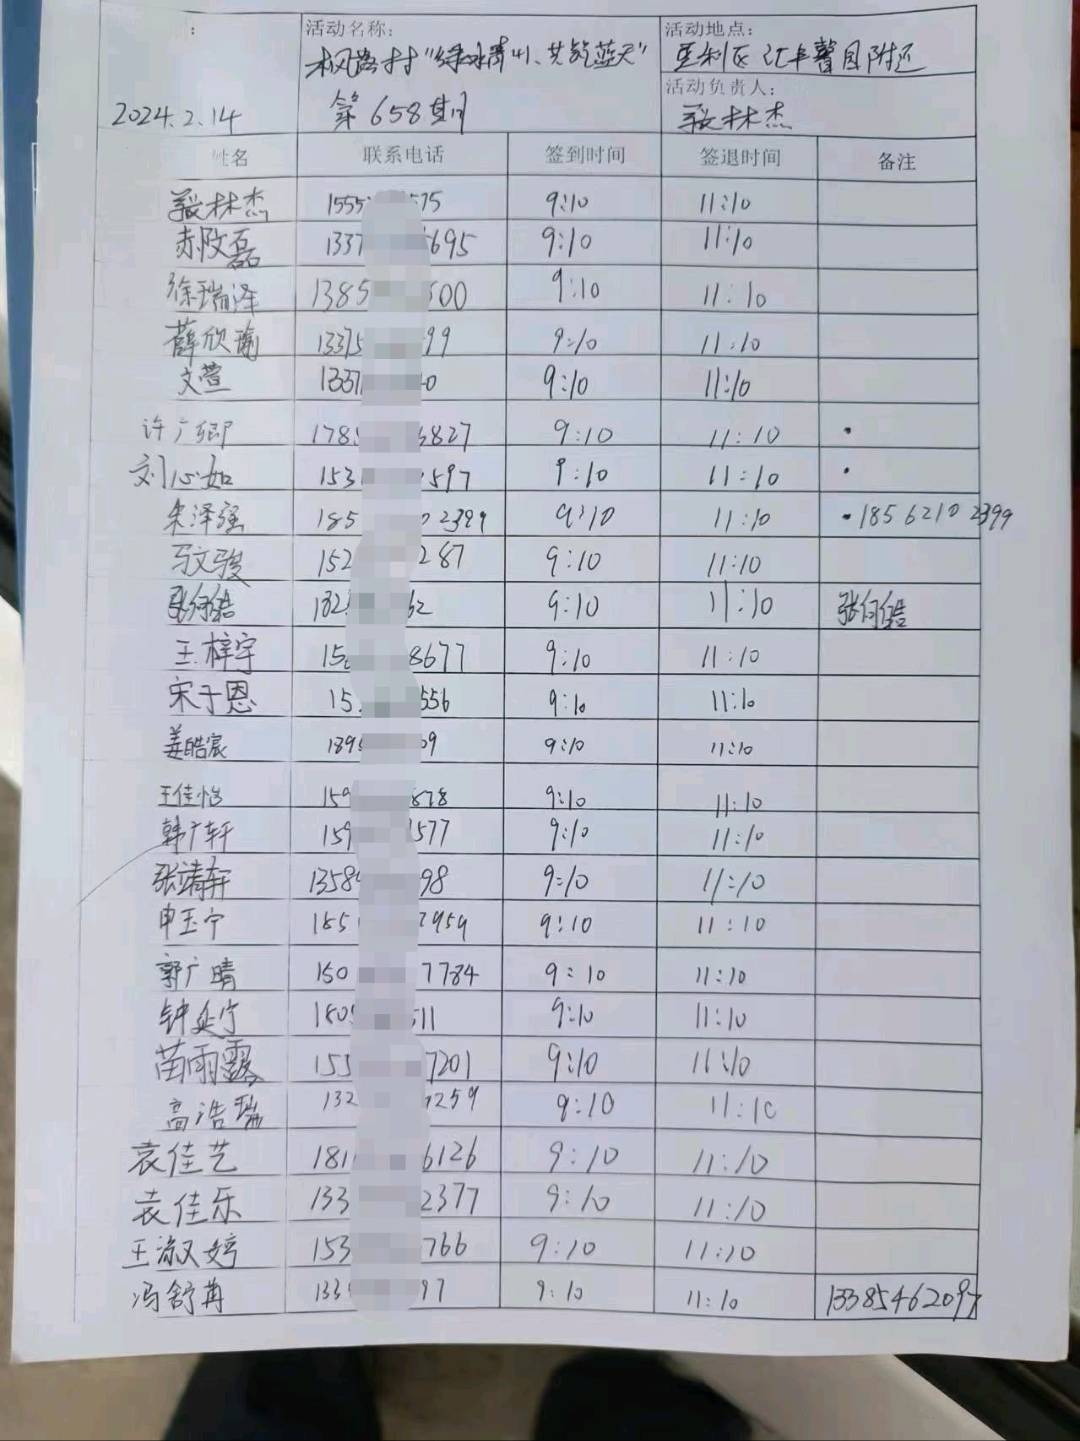 活动名称:
活动地点:
"绿水青山、共乾蓝天"
垦利区 附近
活动负责人:
2024.2.14 第658期
林杰
姓名 联系电话 签到时间 签退时间 备注
林杰 1555 575 9:10 11:10
磊 1337 5695 9:10 11:10
徐瑞泽 1385 500 9:10 11:10
薛欣瑜 13375 99 9:10 11:10
文萱 1337 0 9:10 11:10
许广卿 178 3827 9:10 11:10
刘心如 153 597 9:10 11:10
朱泽强 185 02399 9:10 11:10 18562102399
马文骏 152 287 9:10 11:10
张何皓 132 62 9:10 11:10 张何皓
王梓宇 15 8677 9:10 11:10
宋于恩 15 556 9:10 11:10
姜皓宸 189 09 9:10 11:10
王佳怡 159 878 9:10 11:10
韩广轩 159 577 9:10 11:10
张靖轩 1358 98 9:10 11:10
申玉宁 185 2959 9:10 11:10
郭广晴 150 7784 9:10 11:10
钟延宁 180 511 9:10 11:10
苗雨露 155 7201 9:10 11:10
高浩瑞 132 259 9:10 11:10
袁佳艺 181 6126 9:10 11:10
袁佳乐 133 2377 9:10 11:10
王淑婷 153 766 9:10 11:10
冯舒冉 133 97 9:10 11:10 13385462097